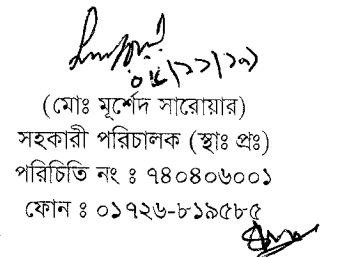 (মোঃ মূর্শেদ সারোয়ার)
সহকারী পরিচালক (স্থাঃ প্রঃ)
পরিচিতি নং ঃ ৭৪০৪০৬০০১
ফোন ঃ ০১৭২৬-৮১৯৫৮৫